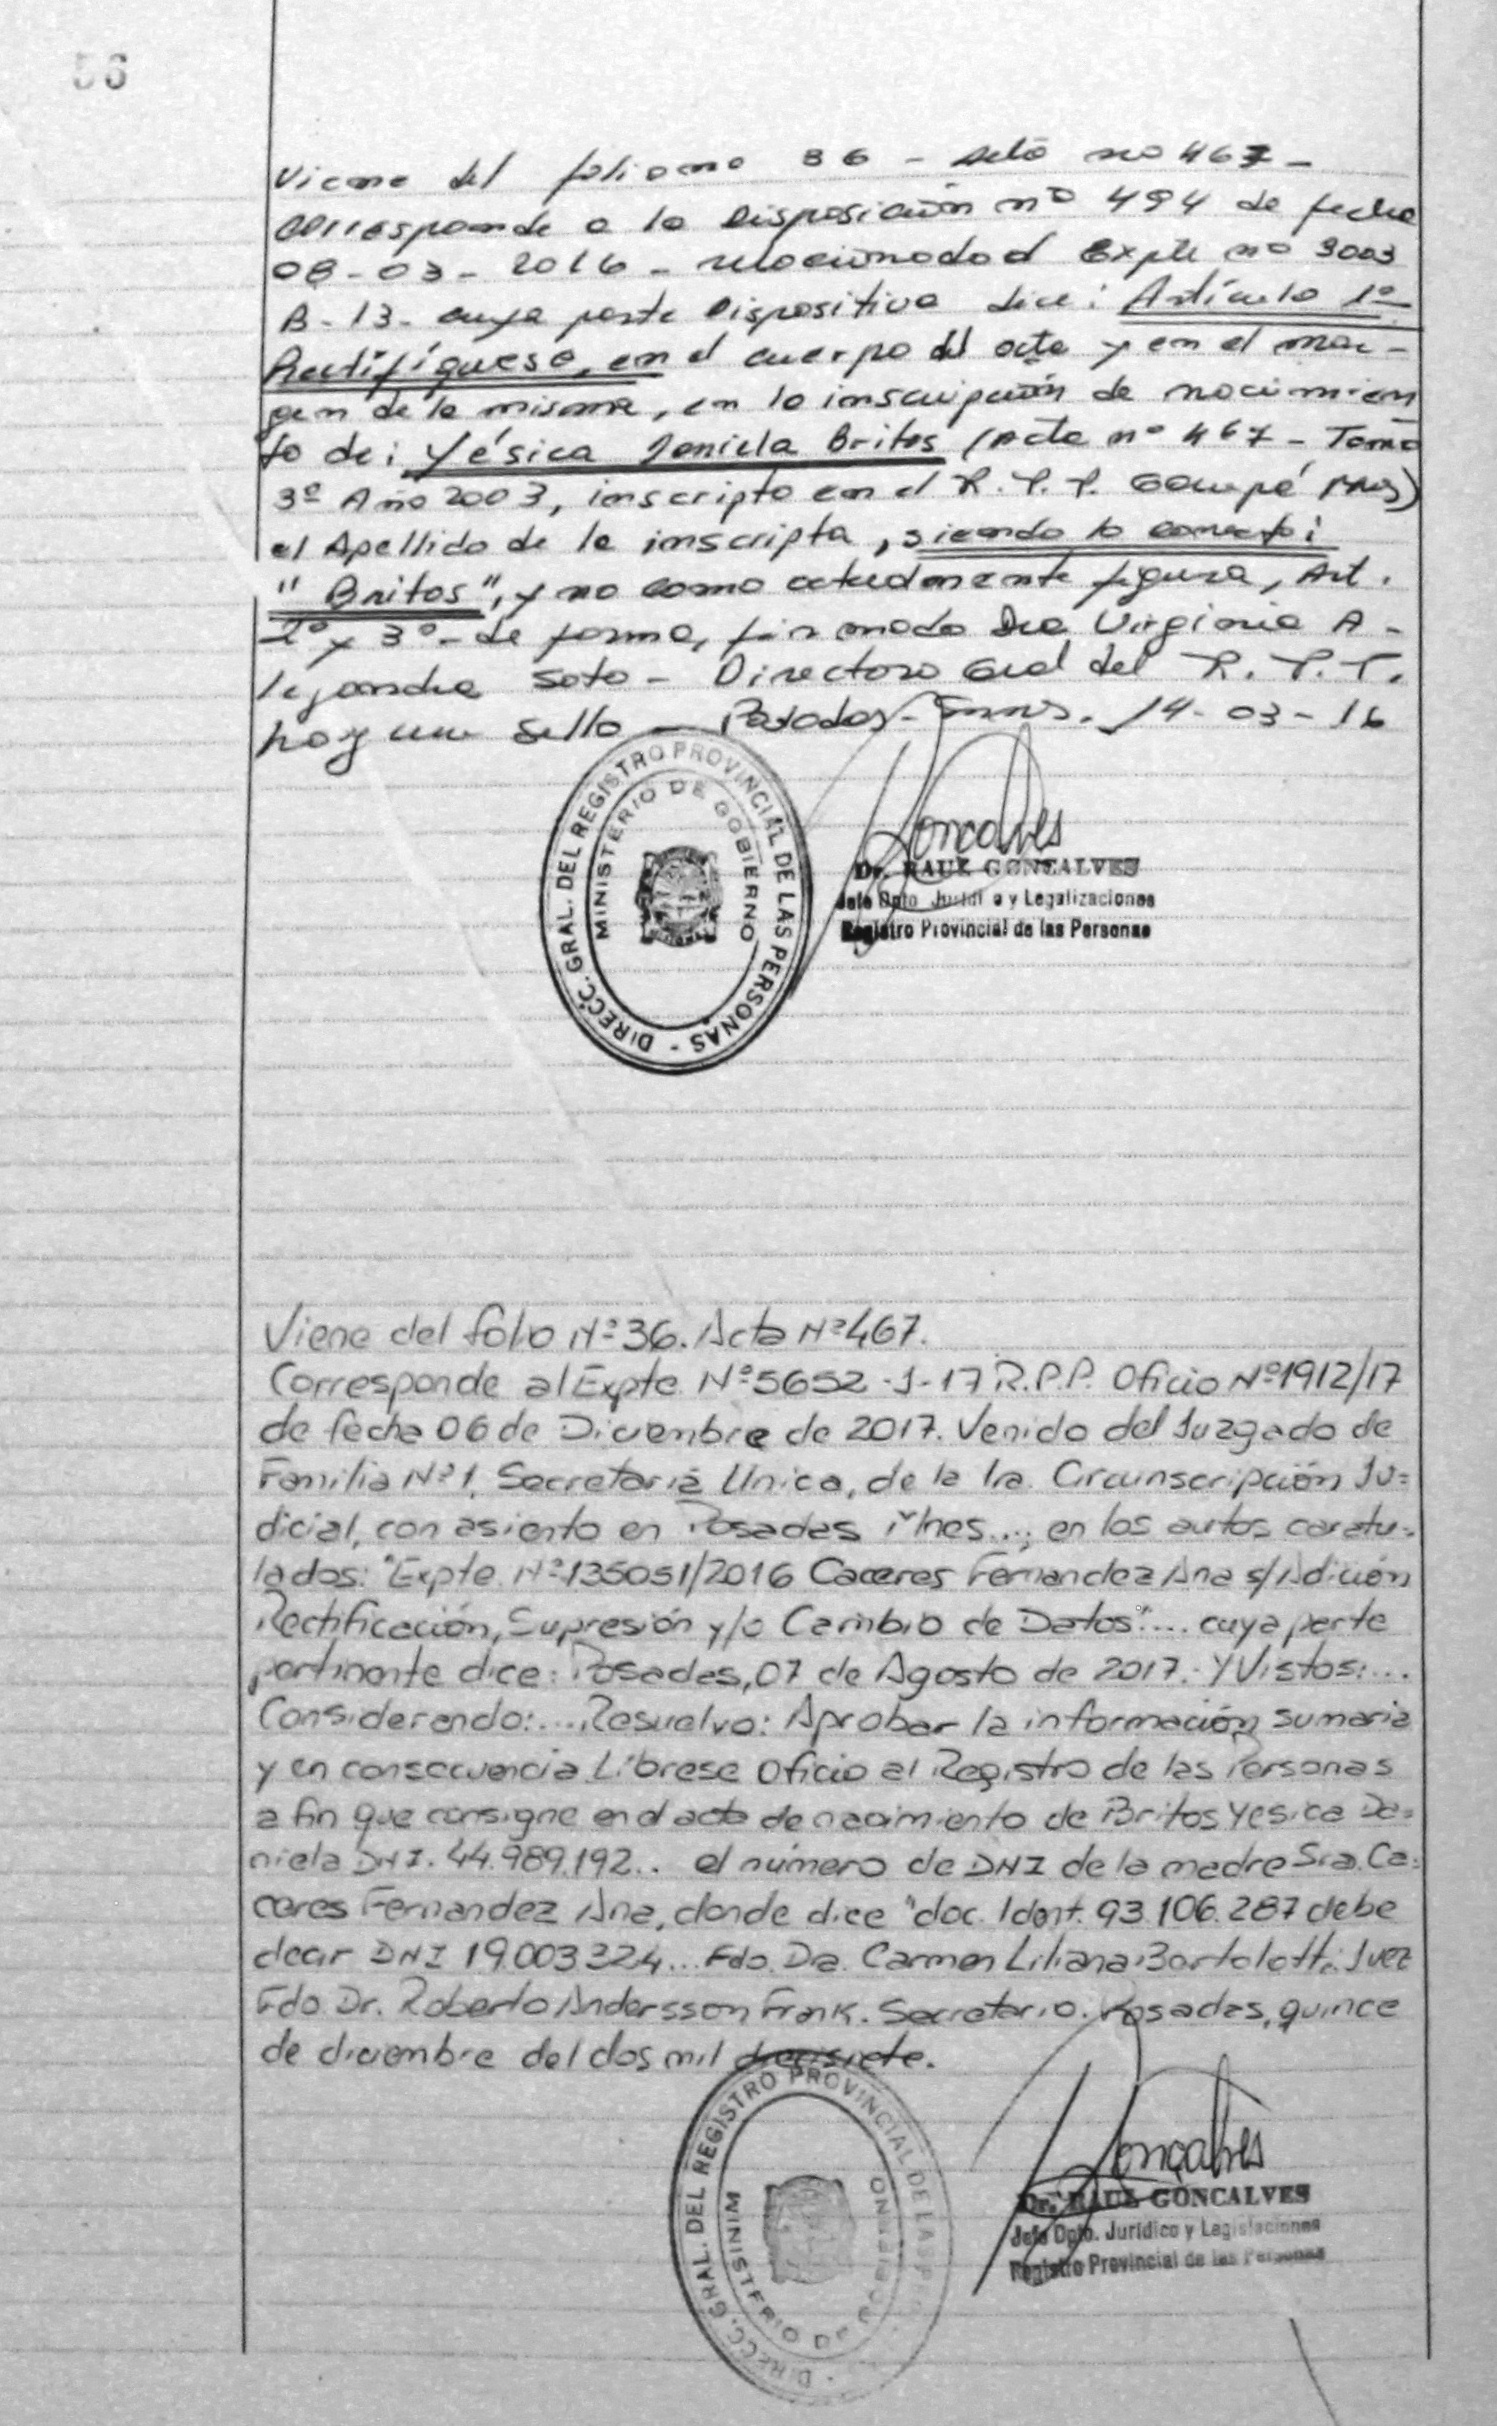 56
Viene del folio no 36 - Acta no 467 -
Corresponde a la Disposición nº 494 de fecha
08-03-2016 - relacionado al Expte nº 3003
B-13- cuya parte Dispositiva dice: Artículo 1º
Rectifíquese, en el cuerpo del acta y en el mar-
gen de la misma, en la inscripción de nacimien
to de: Yésica Daniela Britos (Acta nº 467 - Tomo
3º Año 2003, inscripta en el R.P.P. Garupá Mns)
el Apellido de la inscripta, siendo lo correcto:
"Britos", y no como actualmente figura, Art.
2º y 3º- de forma, firmado Dra Virginia A-
lejandra Soto - Directora Gral del R.P.P.
hay un sello - Posadas - Mnes. 14-03-16
DIRECC. GRAL. DEL REGISTRO PROVINCIAL DE LAS PERSONAS -
MINISTERIO DE GOBIERNO
Goncalves
Dr. RAUL GONCALVES
Jefe Dpto Juridico y Legalizaciones
Registro Provincial de las Personas
Viene del folio Nº 36. Acta Nº 467.
Corresponde al Expte. Nº 5652-J-17 R.P.P. Oficio Nº 1912/17
de fecha 06 de Diciembre de 2017. Venido del Juzgado de
Familia Nº 1, Secretaria Unica, de la 1ra. Circunscripción Ju=
dicial, con asiento en Posadas Mnes...; en los autos caratu=
lados: "Expte. Nº 135051/2016 Caceres Fernandez Ana s/Adición
Rectificación, Supresión y/o Cambio de Datos".... cuya parte
pertinente dice: Posadas, 07 de Agosto de 2017. Y Vistos:...
Considerando:....Resuelvo: Aprobar la información sumaria
y en consecuencia Líbrese Oficio al Registro de las Personas
a fin que consigne en el acta de nacimiento de Britos Yesica Da=
niela DNI. 44.989.192.. el número de DNI de la madre Sra. Ca=
ceres Fernandez Ana, donde dice "doc. Ident. 93.106.287 debe
decir DNI 19.003.324... Fdo. Dra. Carmen Liliana Bortolotti Juez
Fdo. Dr. Roberto Andersson Frank. Secretario. Posadas, quince
de diciembre del dos mil diecisiete.
DIRECC. GRAL. DEL REGISTRO PROVINCIAL DE LAS PER
MINISTERIO DE GOBIERNO
Goncalves
Dr. RAUL GONCALVES
Jefe Dpto. Jurídico y Legislaciones
Registro Provincial de las Personas